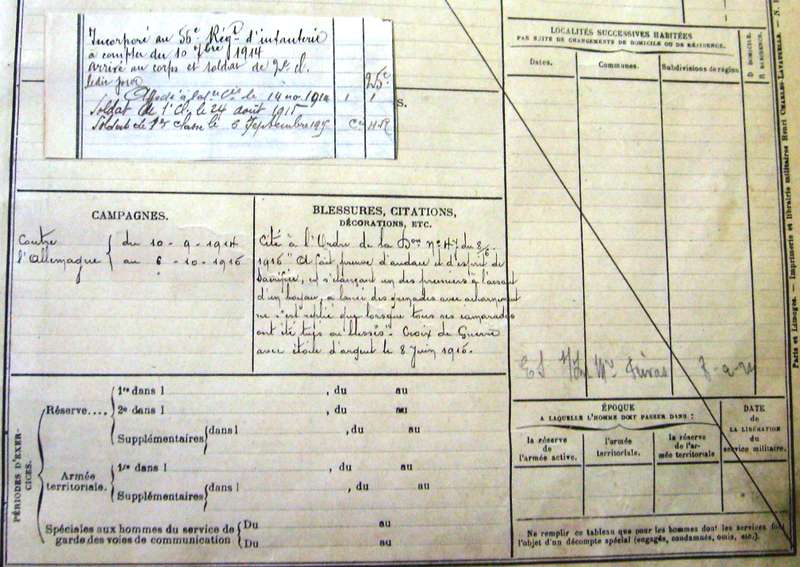 Incorporé au 56e Régt d'infanterie
à compter du 10 7bre 1914
arrivé au corps et soldat de 2e cl.
ledit jour
25e
le 14 nov. 1914
Soldat de 1e Cl. le 24 août 1915
Soldat de 1ère classe le 6 Septembre 1915
CAMPAGNES.
Contre
l'Allemagne
du 10-9-1914
au 6-10-1916
BLESSURES, CITATIONS,
DÉCORATIONS, ETC.
Cité à l'Ordre de la Don n° 47 du 8/6
1916 "A fait preuve d'audace et d'esprit de
Sacrifice, en s'élançant un des premiers à l'assaut
d'un boyau, a lancé des grenades avec acharnement
ne s'est replié que lorsque tous ses camarades
ont été tués ou blessés". Croix de Guerre
avec étoile d'argent le 8 Juin 1916.
LOCALITÉS SUCCESSIVES HABITÉES
PAR SUITE DE CHANGEMENTS DE DOMICILE OU DE RÉSIDENCE.
Dates.
Communes.
Subdivisions de région
D. DOMICILE.
R. RÉSIDENCE.
PÉRIODES D'EXERCICES.
Réserve....
1re dans l , du au
2e dans l , du au
Supplémentaires dans l , du au
Armée
territoriale.
1re dans l , du au
Supplémentaires dans l , du au
Spéciales aux hommes du service de
garde des voies de communication
Du au
Du au
ÉPOQUE
A LAQUELLE L'HOMME DOIT PASSER DANS :
la réserve
de
l'armée active.
l'armée
territoriale.
la réserve
de l'ar-
mée territoriale
DATE
de
LA LIBÉRATION
du
service militaire.
Ne remplir ce tableau que pour les hommes dont les services font
l'objet d'un décompte spécial (engagés, condamnés, omis, etc.).
Paris et Limoges. — Imprimerie et librairie militaires Henri CHARLES-LAVAUZELLE. — N.